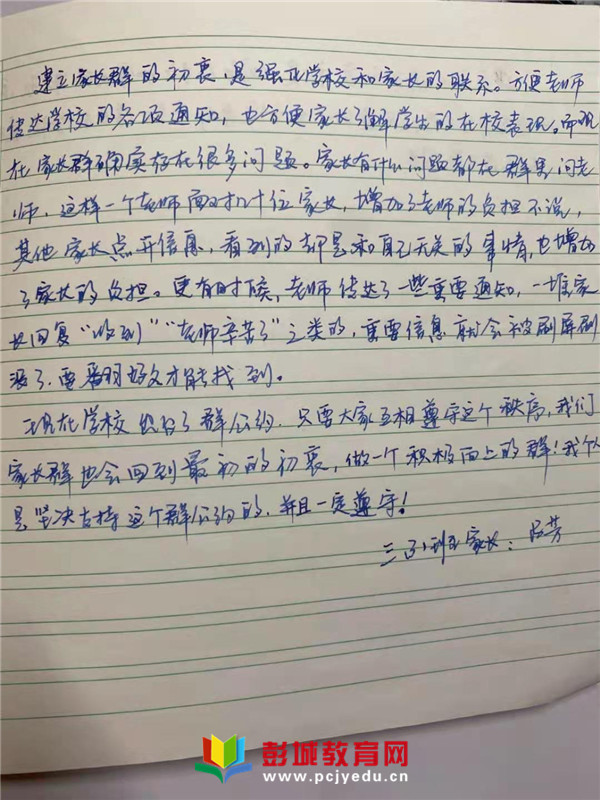 建立家长群的初衷，是强化学校和家长的联系。方便老师
传达学校的各项通知，也方便家长了解学生的在校表现。而现
在家长群确实存在很多问题。家长有什么问题都在群里问老
师，这样一个老师面对几十位家长，增加了老师的负担不说，
其他家长点开信息，看到的却是和自己无关的事情，也增加
了家长的负担。更有时候，老师传达了一些重要通知，一堆家
长回复“收到”“老师辛苦了”之类的，重要信息就会被刷屏刷
没了，要翻好久才能找到。
现在学校公约了群公约，只要大家互相遵守这个秩序，我们
家长群也会回到最初的初衷，做一个积极向上的群！我个人
是坚决支持这个群公约的，并且一定遵守！
三（3）班 家长：吕芳
彭城教育网
www.pcjyedu.cn